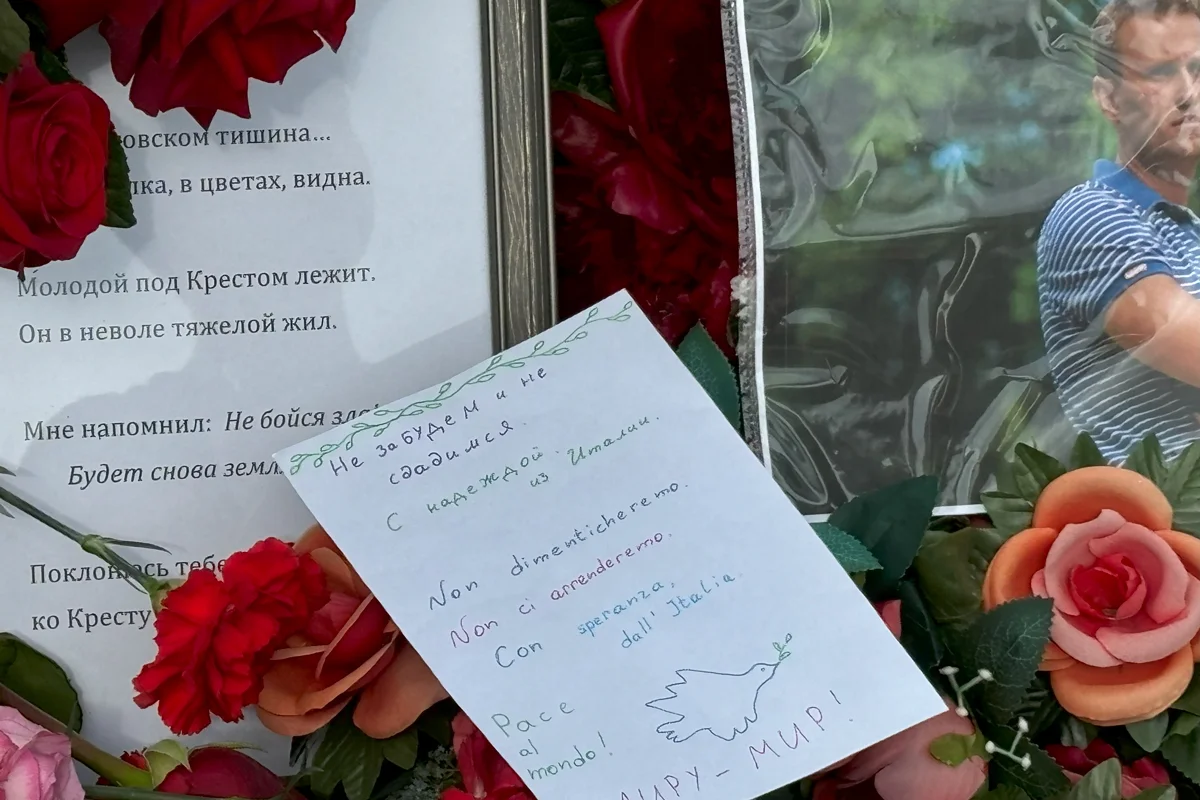 тишина...
в цветах, видна.
Молодой под Крестом лежит.
Он в неволе тяжелой жил.
Мне напомнил: Не бойся
Будет снова
Поклонюсь
ко Кресту
Не забудем и не
сдадимся.
С надеждой.
из Италии.
Non dimenticheremo.
Non ci arrenderemo.
Con speranza,
dall' Italia.
Pace
al
mondo!
МИРУ – МИР!